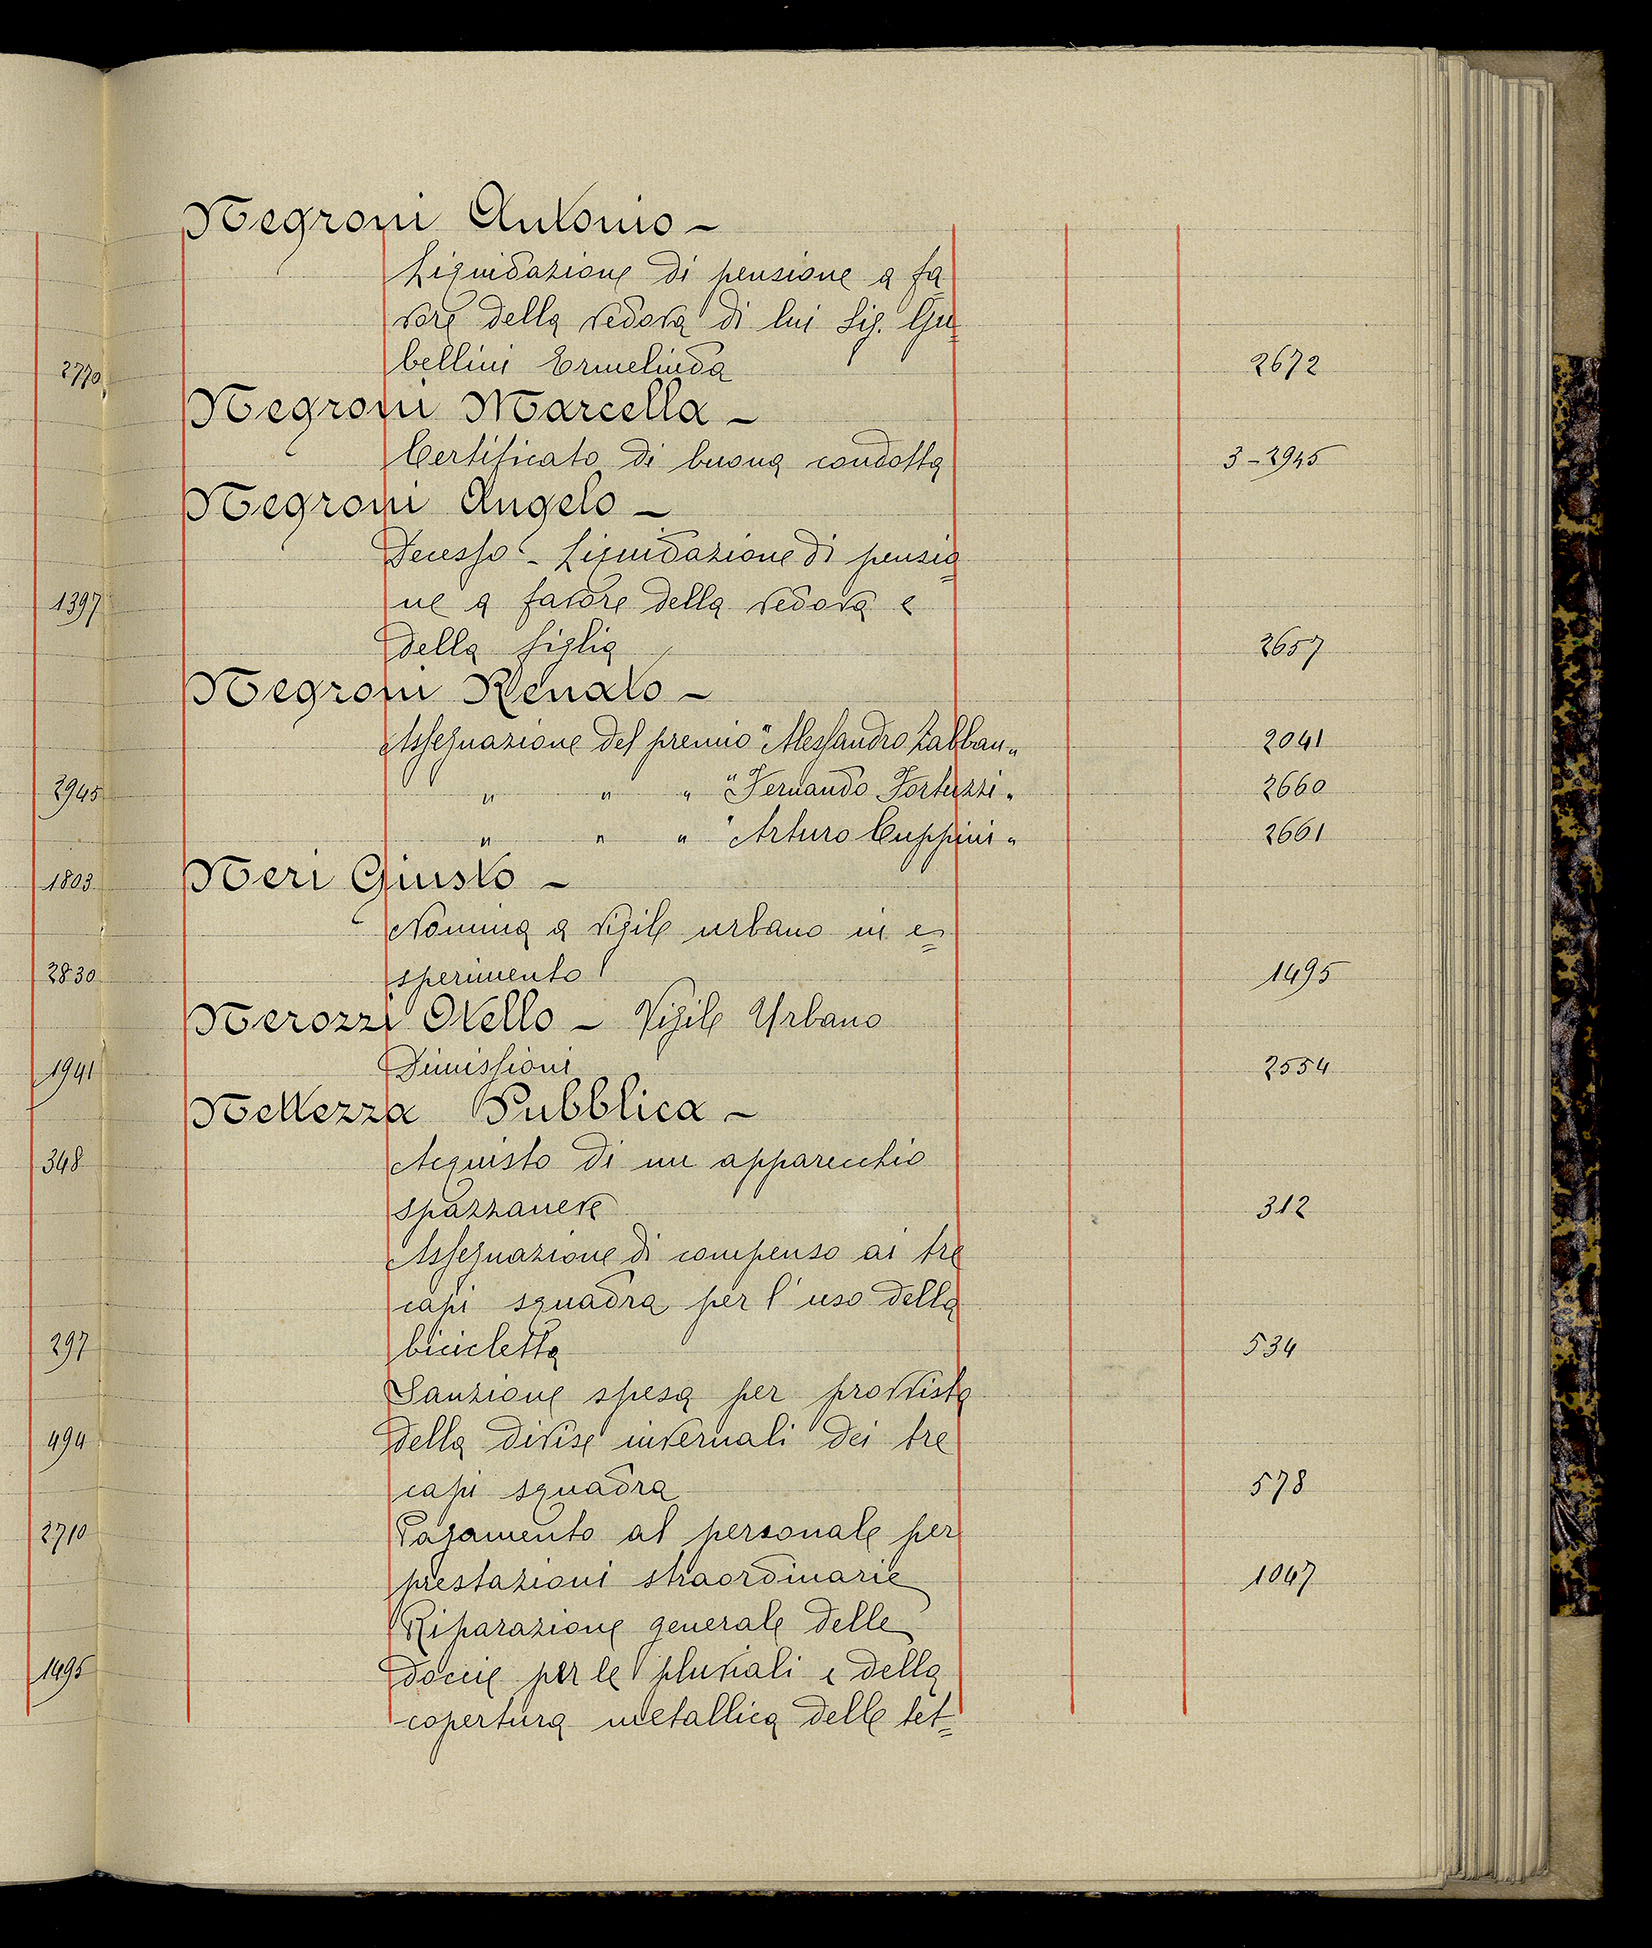 2770
1397
2945
1803
2830
1941
348
297
494
2710
1495
Negroni Antonio –
Liquidazione di pensione a fa=
vore della vedova di lui Sig. Gu=
bellini Ermelinda 2672
Negroni Marcella –
Certificato di buona condotta 3-2945
Negroni Angelo –
Decesso – Liquidazione di pensio=
ne a favore della vedova e
della figlia 2657
Negroni Renato –
Assegnazione del premio "Alessandro Zabban" 2041
" " " "Fernando Fortuzzi" 2660
" " " "Arturo Cuppini" 2661
Neri Giusto –
Nomina a vigile urbano in e=
sperimento 1495
Nerozzi Otello – Vigile Urbano
Dimissioni 2554
Nettezza Pubblica –
Acquisto di un apparecchio
spazzaneve 312
Assegnazione di compenso ai tre
capi squadra per l'uso della
bicicletta 534
Sanzione spesa per provvista
della divise invernali dei tre
capi squadra 578
Pagamento al personale per
prestazioni straordinarie 1047
Riparazione generale delle
doccie per le pluviali e della
copertura metallica delle tet=